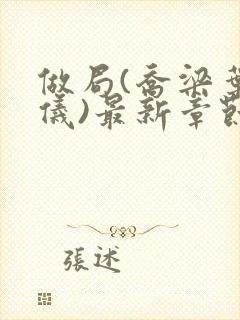 做局(喬梁葉
儀)最新章節
張述